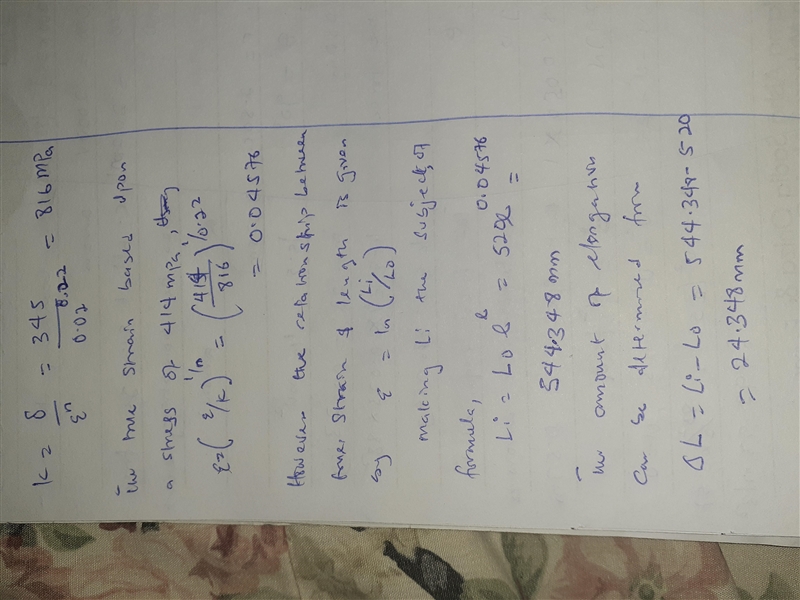 K = δ/Ɛⁿ = 345/0.02^0.22 = 816 MPa
The true strain based upon
a stress of 414 mpa,
Ɛ = (Ɛ/K)^1/n = (414/816)^1/0.22
= 0.04576
However the relationship between
true strain & length is given
by Ɛ = ln (Li/Lo)
making Li the subject of
formula,
Li = Lo e^Ɛ = 520e^0.04576 =
544.348 mm
The amount of elongation
can be determined from
ΔL = Li - Lo = 544.348 - 520
= 24.348mm